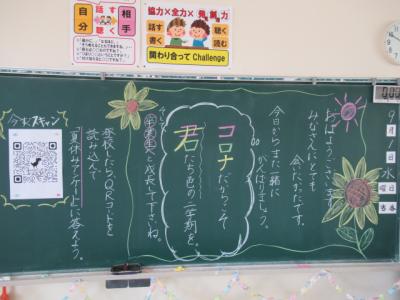 自分
話す
聴く
相手
協力×全力×発信力
話す
書く
聴く
読む
関わり合ってChallenge
9月1日水
曜日
おはようございます。
みなさんにとても
会いたかったです。
今日からまた一緒に
がんばりましょう。
コロナだからこそ
君たち色の二学期を。
と成長ですすね。
今すぐスキャン
登校したら、QRコードを
読み込んで
「夏休みアンケート」に答えよう。